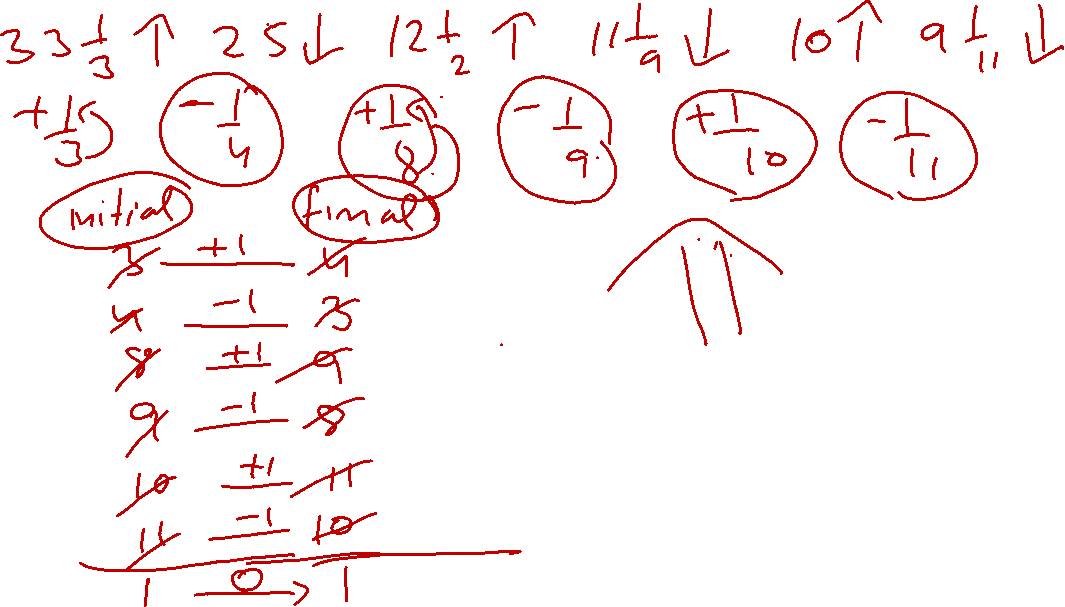 33 1/3 ↑ 25 ↓ 12 1/2 ↑ 11 1/9 ↓ 10 ↑ 9 1/11 ↓
+1/3 -1/4 +1/8 -1/9 +1/10 -1/11
initial final
3 +1 4
4 -1 3
8 +1 9
9 -1 8
10 +1 11
11 -1 10
1 0 → 1